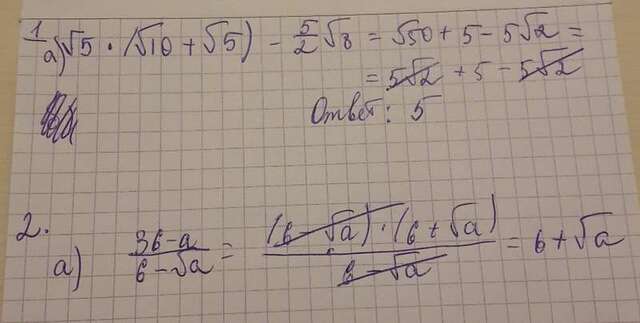 1
а) √5 · (√10 + √5) - 5/2 √8 = √50 + 5 - 5√2 =
= 5√2 + 5 - 5√2
Ответ: 5
2.
а) (36-a)/(6-√a) = ((6-√a)·(6+√a))/(6-√a) = 6+√a